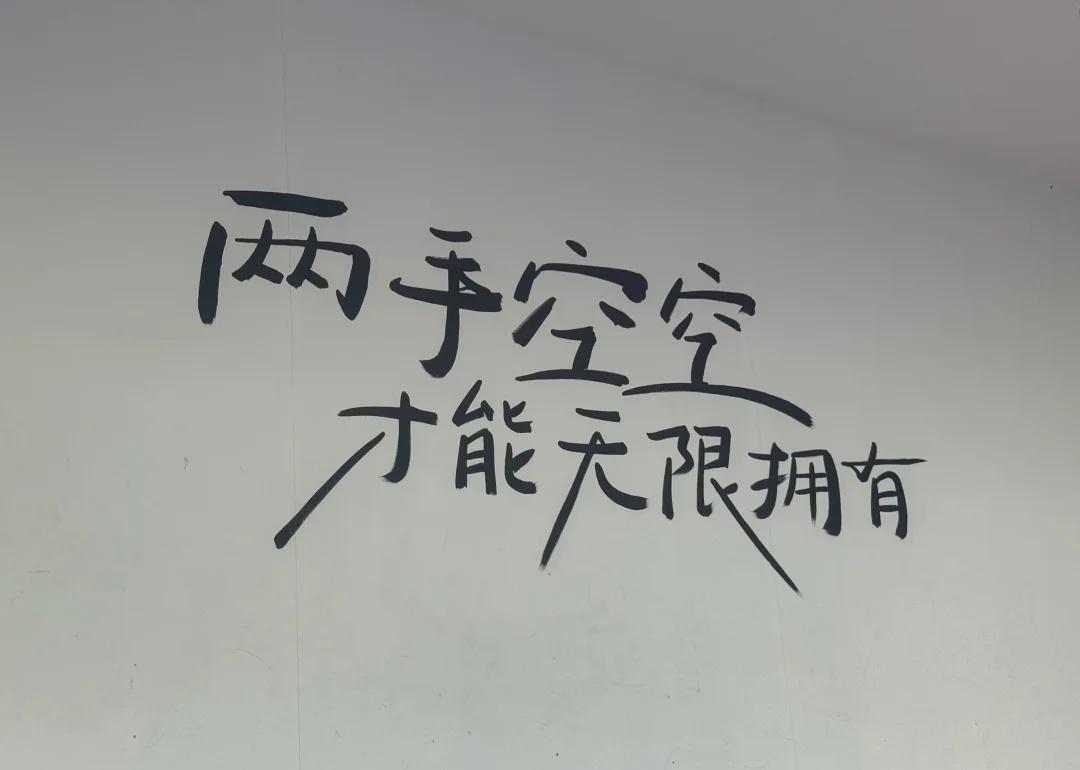 两手空空
才能无限拥有